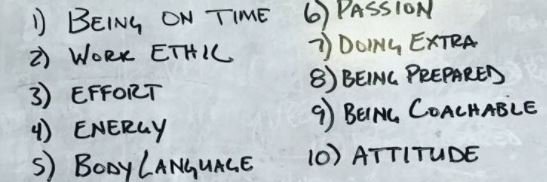 1) BEING ON TIME
2) WORK ETHIC
3) EFFORT
4) ENERGY
5) BODY LANGUAGE
6) PASSION
7) DOING EXTRA
8) BEING PREPARED
9) BEING COACHABLE
10) ATTITUDE